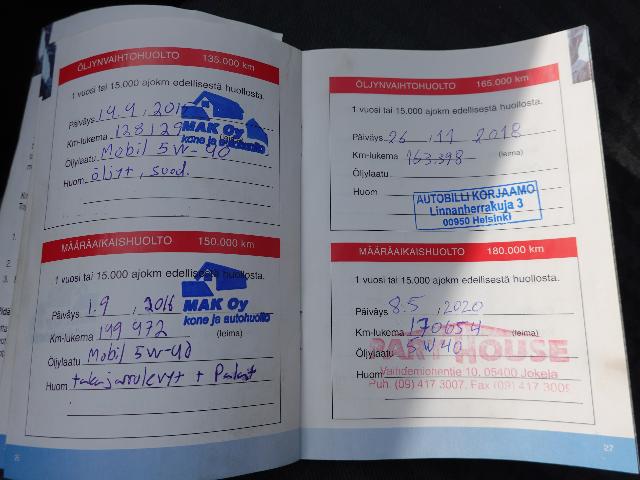 ÖLJYNVAIHTOHUOLTO 135.000 km
1 vuosi tai 15.000 ajokm edellisestä huollosta.
Päiväys 14.9.
Km-lukema 128129
MAK Oy
kone ja autohuolto
Öljylaatu Mobil 5W-40
Huom öljyt, suod.
MÄÄRÄAIKAISHUOLTO 150.000 km
1 vuosi tai 15.000 ajokm edellisestä huollosta.
Päiväys 1.9, 2016
MAK Oy
kone ja autohuolto
Km-lukema 149972
(leima)
Öljylaatu Mobil 5W-40
Huom takajarrulevyt + Palat
ÖLJYNVAIHTOHUOLTO 165.000 km
1 vuosi tai 15.000 ajokm edellisestä huollosta.
Päiväys 26 .11 2018
Km-lukema 163.398 (leima)
Öljylaatu
Huom
AUTOBILLI KORJAAMO
Linnanherrakuja 3
00950 Helsinki
MÄÄRÄAIKAISHUOLTO 180.000 km
1 vuosi tai 15.000 ajokm edellisestä huollosta.
Päiväys 8.5 ,2020
Km-lukema 170654 (leima)
Öljylaatu 5W40
PART HOUSE
Huom
05400 Jokela
Puh. (09) 417 3007, Fax (09) 417 3009
27